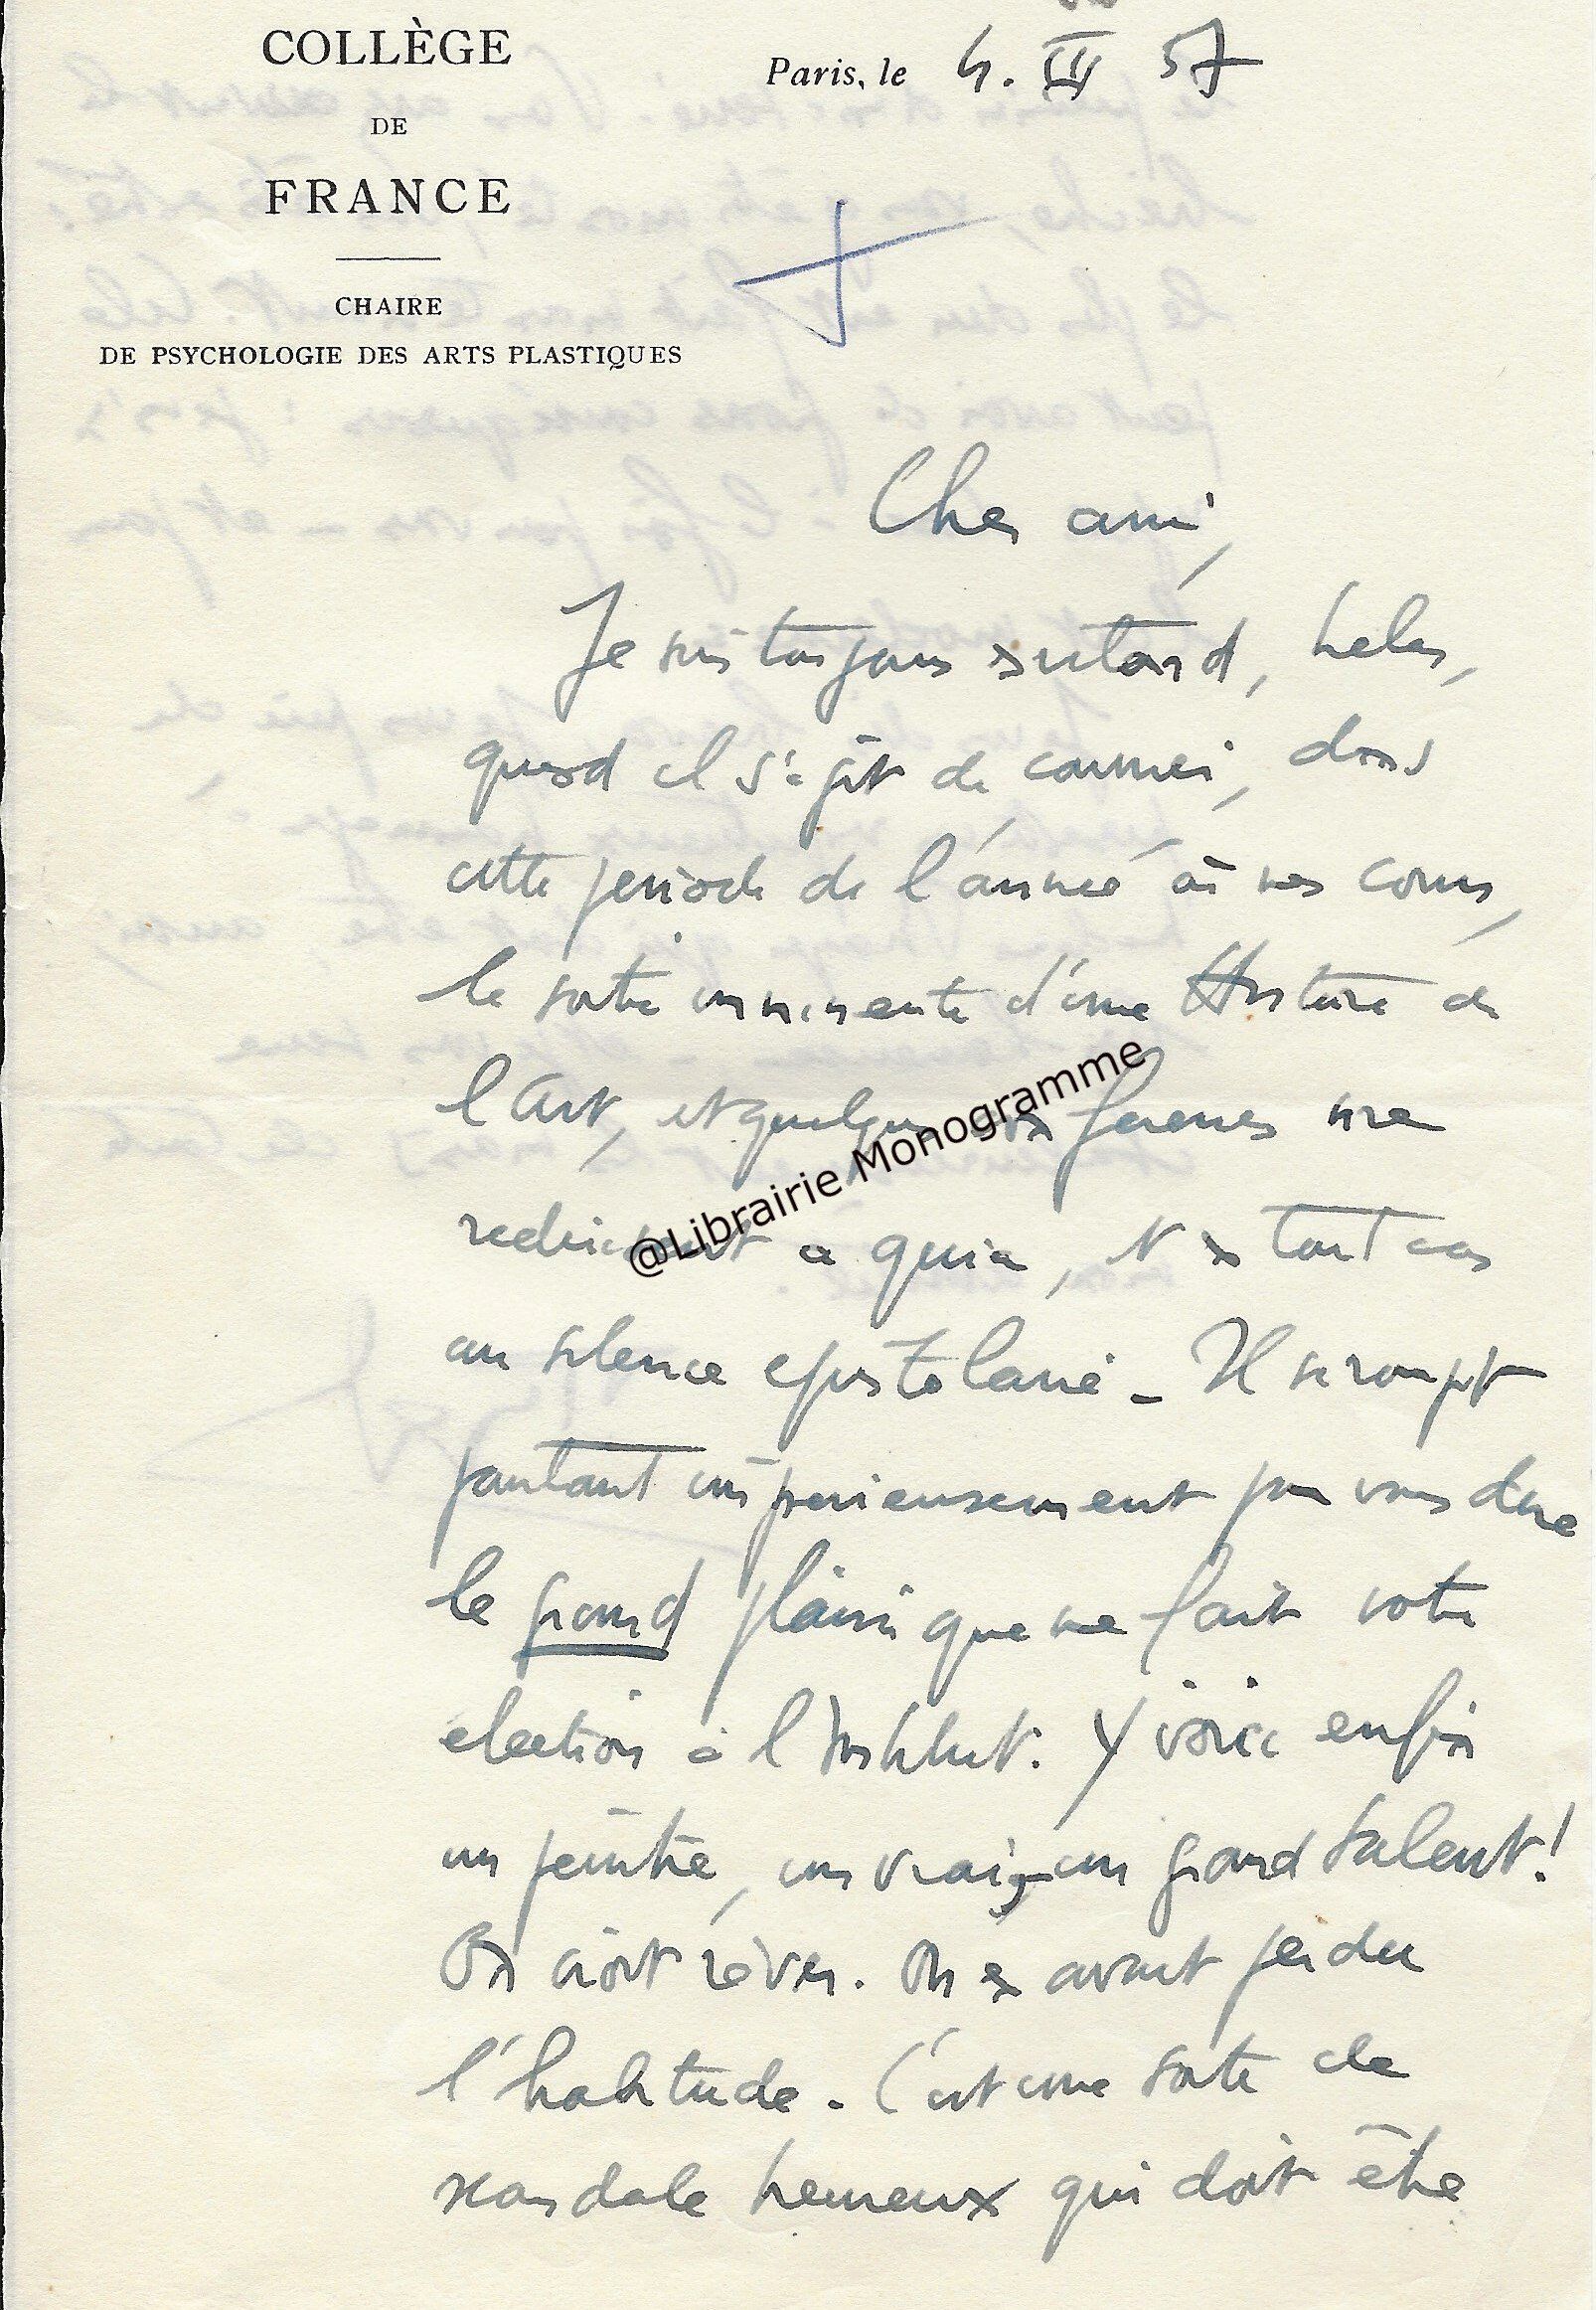 COLLÈGE
DE
FRANCE
CHAIRE
DE PSYCHOLOGIE DES ARTS PLASTIQUES
Paris, le 4. III 57
Cher ami,
Je suis toujours en retard, helas,
quand il s'agit de courrier, dans
cette periode de l'année où mes cours,
la sortie imminente d'une Histoire de
l'Art, et quelques conferences me
reduisent a quia, et en tout cas
au silence epistolaire - Il se rompt
pourtant imperieusement pour vous dire
le grand plaisir que me fait votre
election à l'Institut. Y voici enfin
un peintre, un vrai, un grand talent!
On croit rêver. On en avait perdu
l'habitude. C'est une sorte de
scandale heureux qui doit être
@Librairie Monogramme